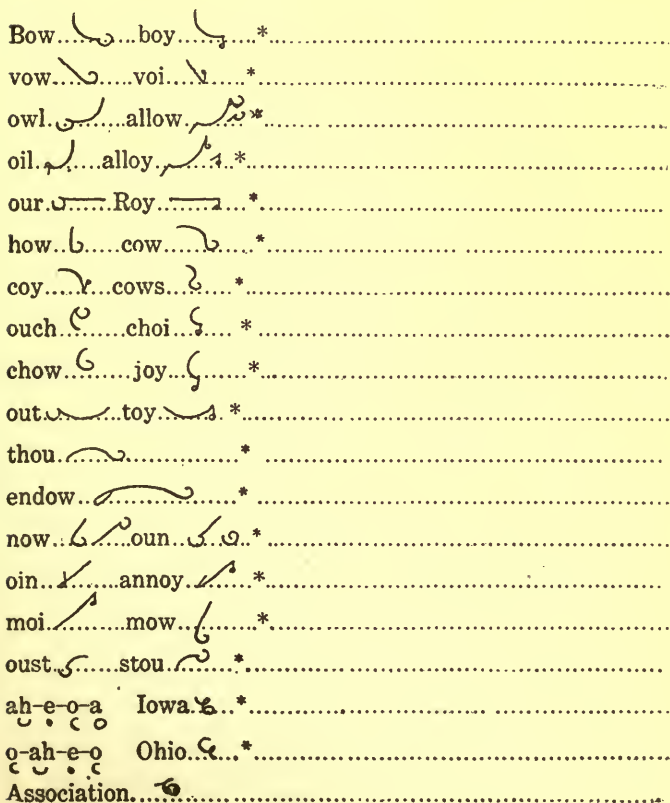 Bow boy *
vow voi *
owl allow *
oil alloy *
our Roy *
how cow *
coy cows *
ouch choi *
chow joy *
out toy *
thou *
endow *
now oun *
oin annoy *
moi mow *
oust stou *
ah-e-o-a Iowa *
o-ah-e-o Ohio *
Association